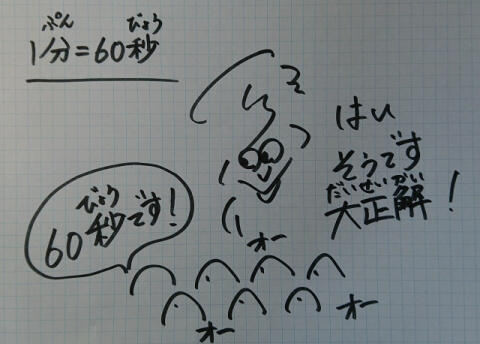 ぷん びょう
1分=60秒
はい
そうです
だいせいかい
大正解!
びょう
60秒です!
オー
オー
オー